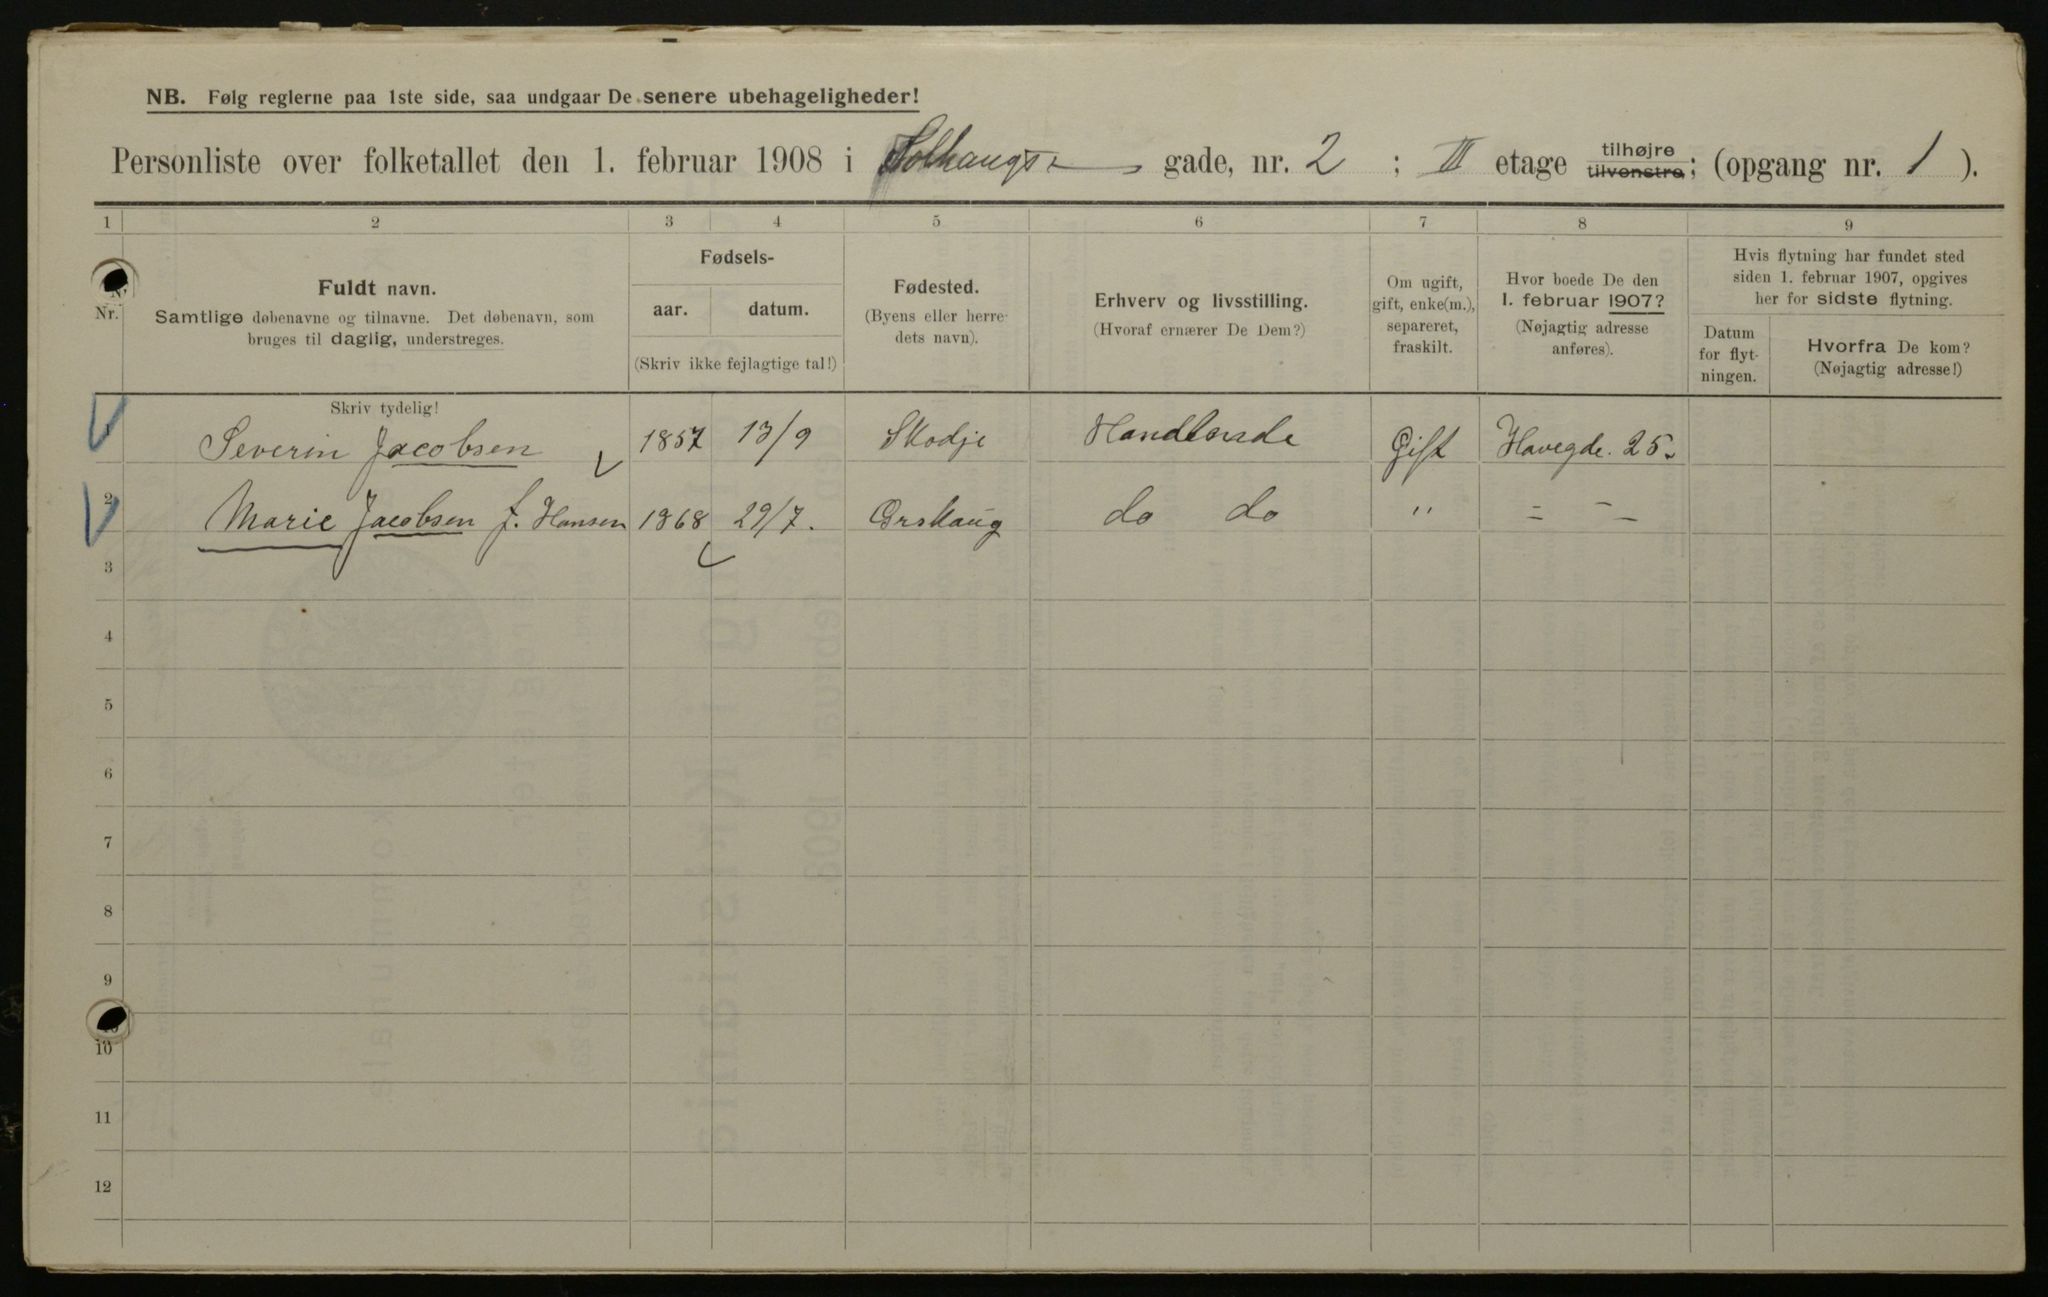 NB. Følg reglerne paa 1ste side, saa undgaar De senere ubehageligheder!
Personliste over folketallet den 1. februar 1908 i Solhaugs gade, nr. 2 ; III etage tilhøjre tilvenstre; (opgang nr. 1 ).
1 2 3 4 5 6 7 8 9
Nr.
Fuldt navn.
Samtlige døbenavne og tilnavne. Det døbenavn, som
bruges til daglig, understreges.
Fødsels-
aar. datum.
(Skriv ikke fejlagtige tal!)
Fødested.
(Byens eller herre-
dets navn).
Erhverv og livsstilling.
(Hvoraf ernærer De Dem?)
Om ugift,
gift, enke(m.),
separeret,
fraskilt.
Hvor boede De den
1. februar 1907?
(Nøjagtig adresse
anføres).
Hvis flytning har fundet sted
siden 1. februar 1907, opgives
her for sidste flytning.
Datum
for flyt-
ningen.
Hvorfra De kom?
(Nøjagtig adresse!)
Skriv tydelig!
Severin Jacobsen 1857 13/9 Skodje Gift Havegde. 25.
2 Marie Jacobsen f. Hansen 1868 29/7. Ørskaug do do " = – –
3
4
5
6
7
8
9
10
11
12